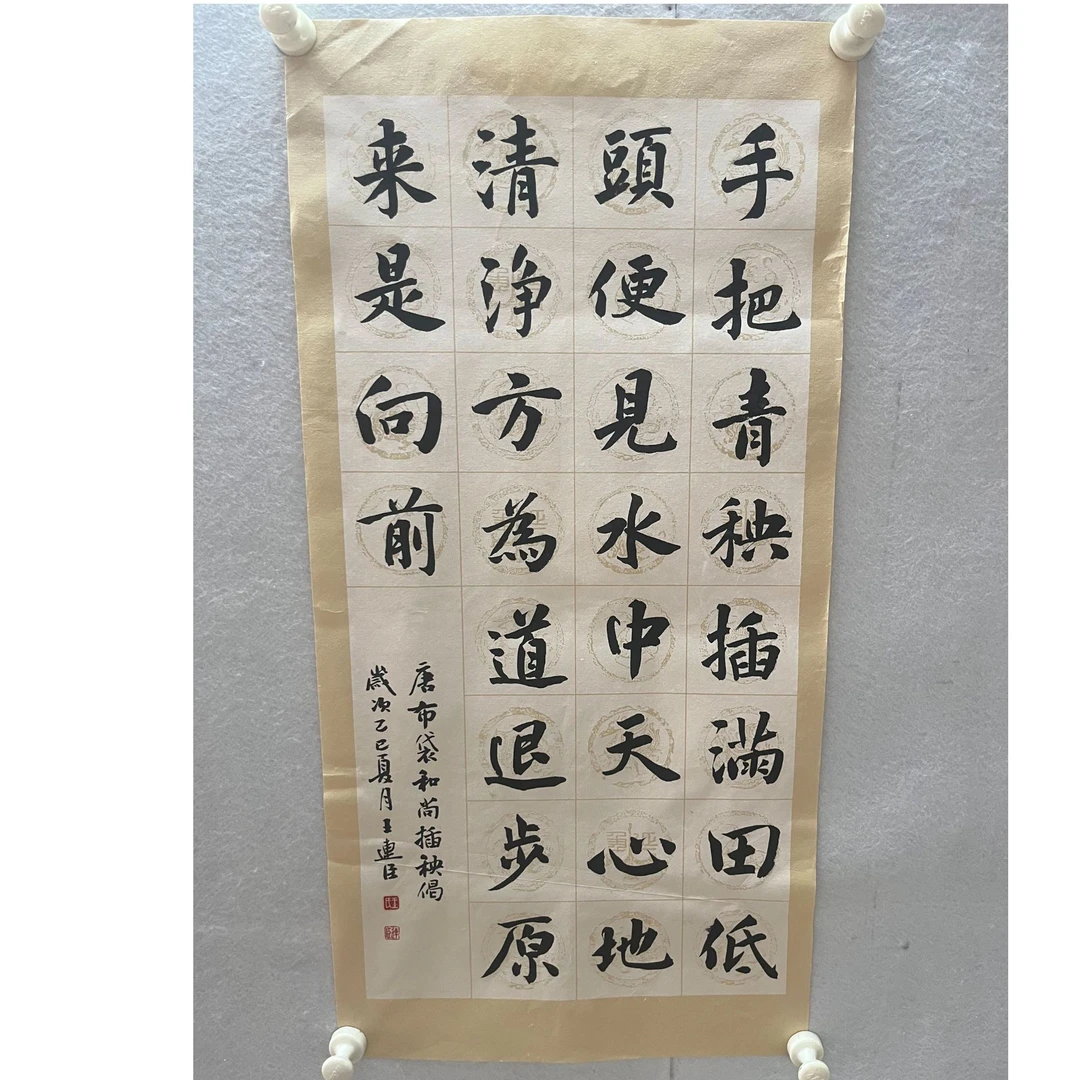 手把青秧插滿田低
頭便見水中天心地
清浄方為道退步原
来是向前
唐布袋和尚插秧偈
歲次乙巳夏月王連臣